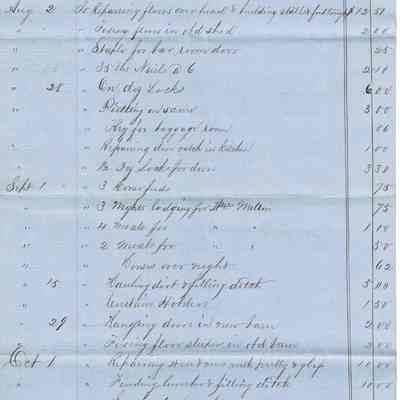 Aug 2 " To Repairing floors over head & building
" " " Fixing floors in old shed 2 00
" " " Staple for bar room door 25
" " " 35 lbs Nails @ 6 2 10
" 28 " On dg Locks 6 00
" " Putting on same 3 00
" " Key for baggage room 06
" " Repairing door catch in Kitchen 1 00
" " Dg Lock for door
Sept 1 " " 3 Horse feeds 75
" " 3 Nights lodging for Wm Melton 75
" " 4 meals for " " 1 00
" " 2 meals for " " 50
" " Horses over night 62
" 15 " Hauling dirt & filling ditch 5 00
" " Curtain Holders 1 50
" 29 " Hanging doors in new barn 2 00
" " Fixing floor sleeper in old barn 2 00
Oct 1 " Repairing Windows with putty & glass 12 00
" " lumber & filling ditch 10 00